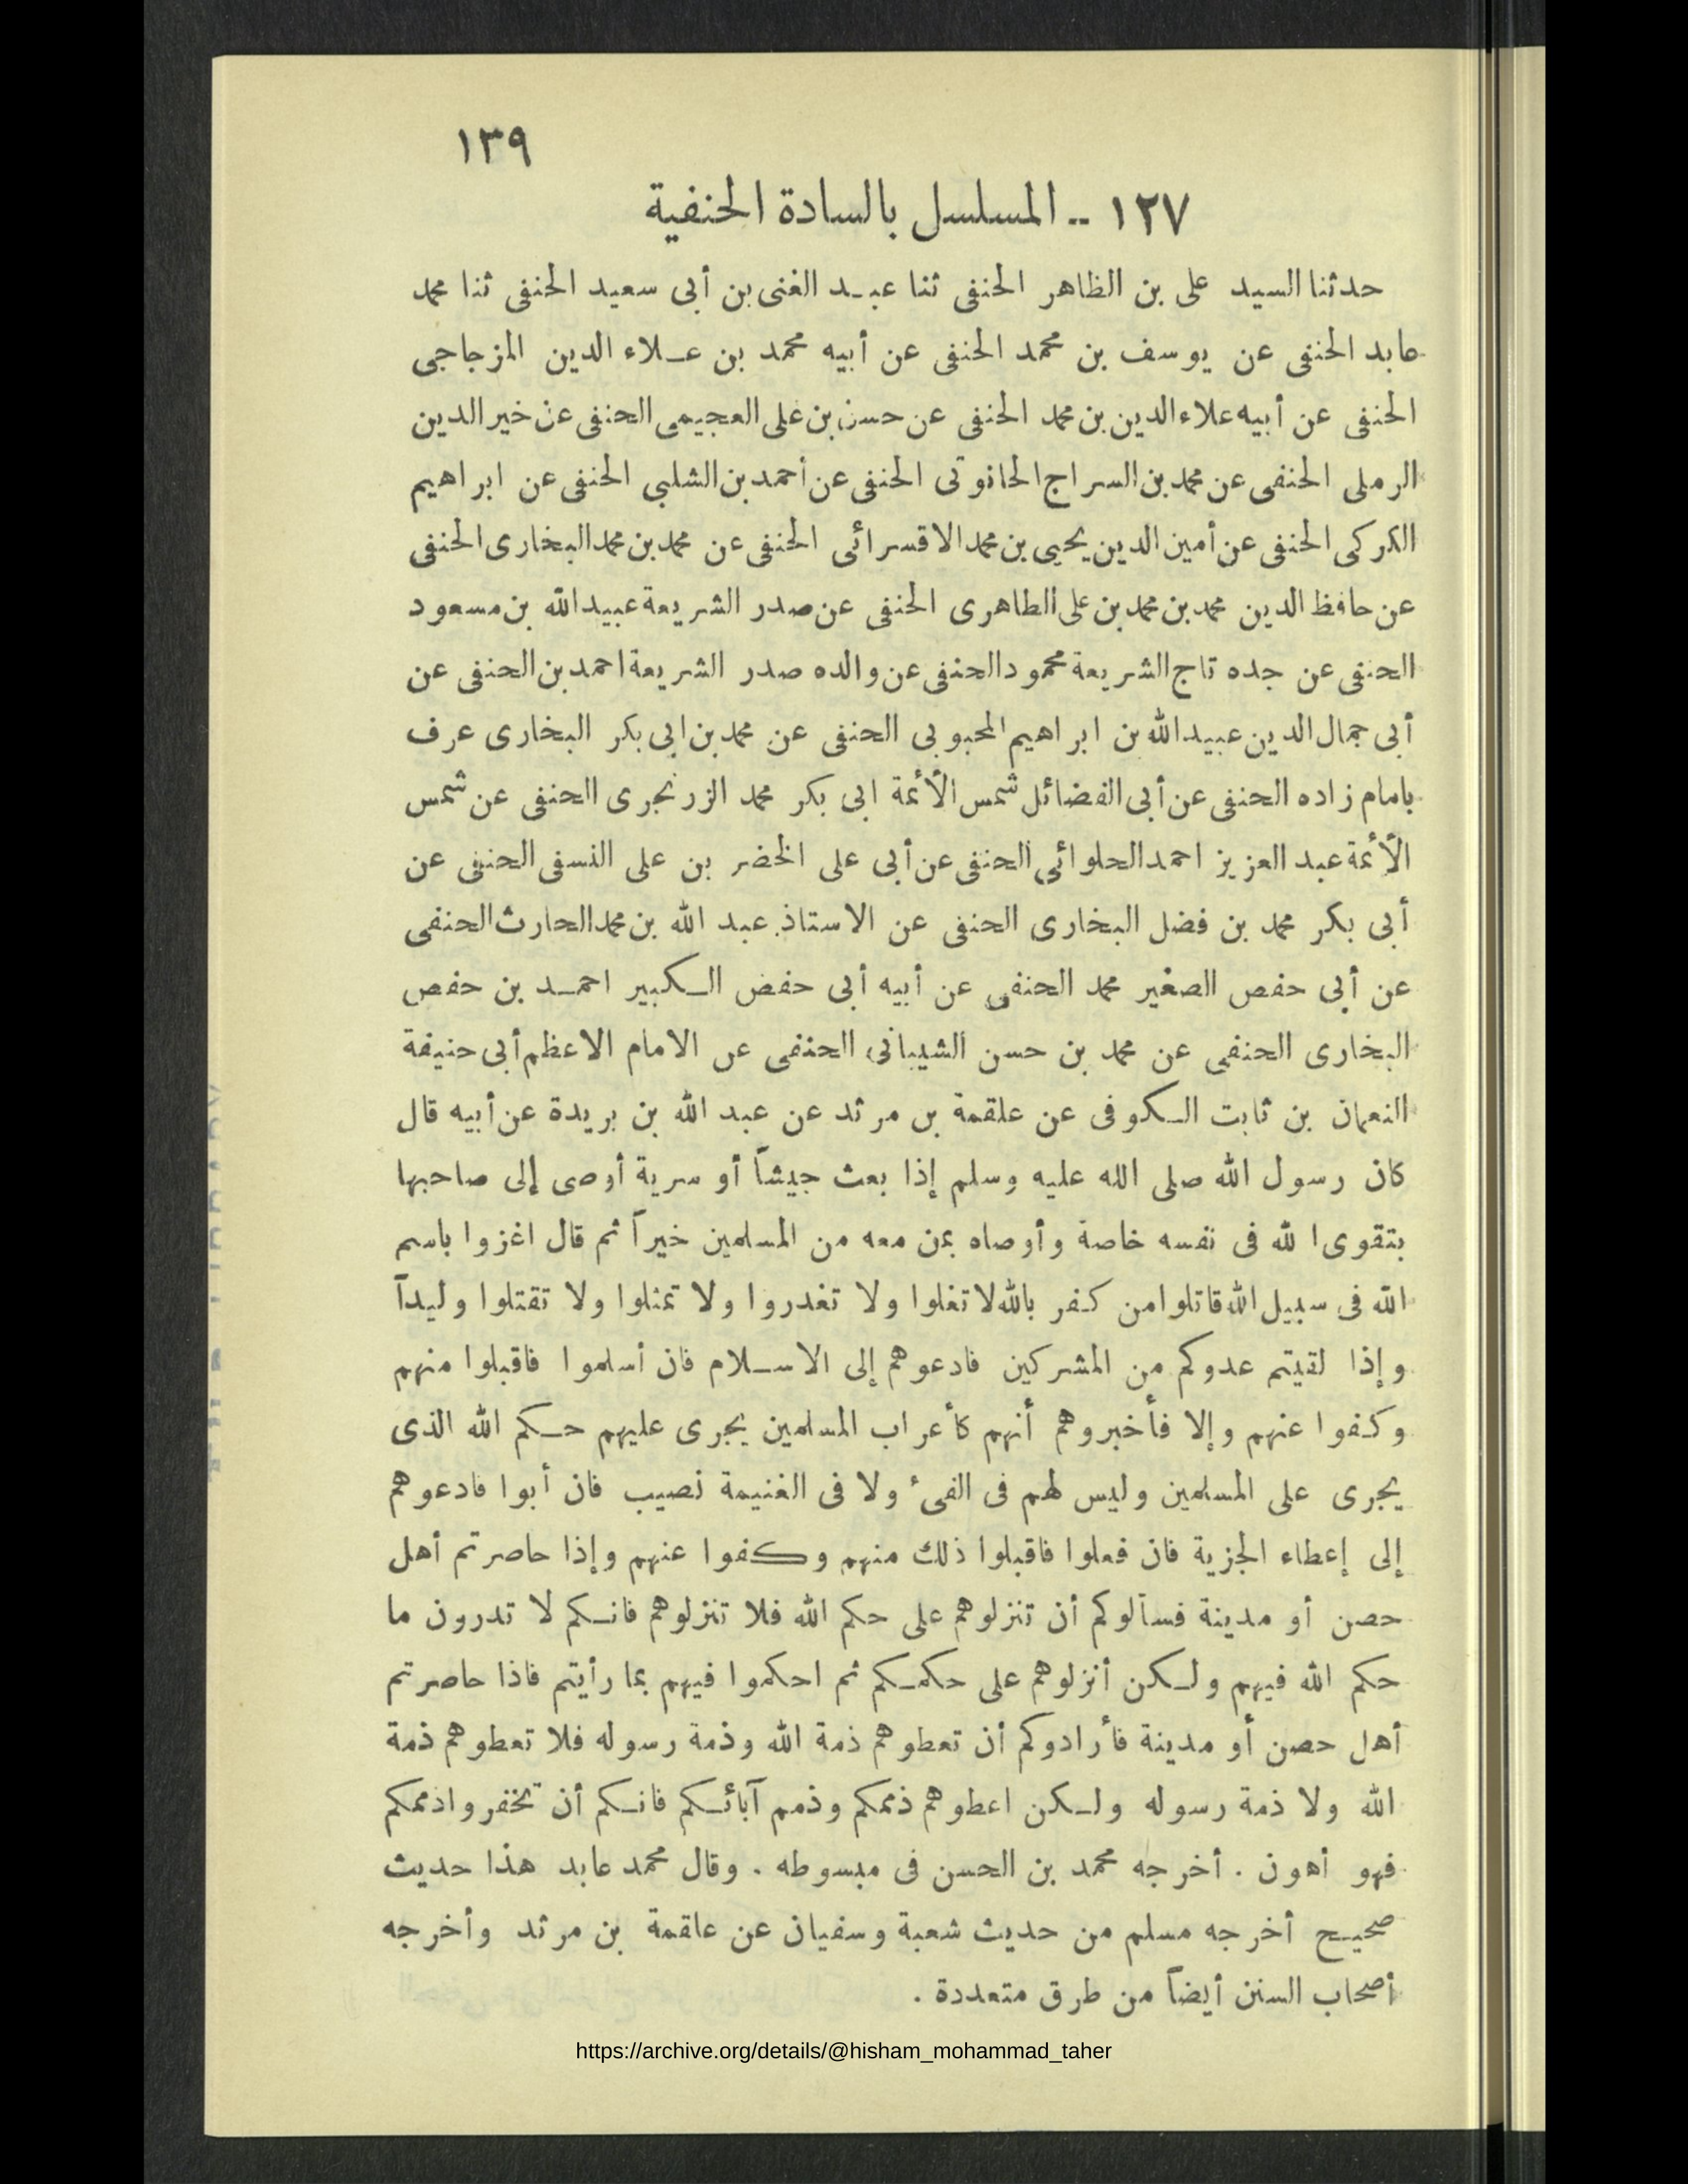 ١٣٩
١٢٧ -- المسلسل بالسادة الحنفية
حدثنا السيد على بن الظاهر الحنفى ثنا عبد الغنى بن أبى سعيد الحنفى ثنا محمد
عابد الحنفى عن يوسف بن محمد الحنفى عن أبيه محمد بن علاء الدين المزجاجى
الحنفى عن أبيه علاء الدين بن محمد الحنفى عن حسن بن على العجيمى الحنفى عن خير الدين
الرملى الحنفى عن محمد بن السراج الحانوتى الحنفى عن أحمد بن الشلبي الحنفى عن ابراهيم
الكركى الحنفى عن أمين الدين يحيى بن محمد الاقسرائى الحنفى عن محمد بن محمد البخارى الحنفى
عن حافظ الدين محمد بن محمد بن على الطاهرى الحنفى عن صدر الشريعة عبيد الله بن مسعود
الحنفى عن جده تاج الشريعة محمود الحنفى عن والده صدر الشريعة احمد بن الحنفى عن
أبى جمال الدين عبيد الله بن ابراهيم المحبوبى الحنفى عن محمد بن ابى بكر البخارى عرف
بامام زاده الحنفى عن أبى الفضائل شمس الأئمة ابى بكر محمد الزرنجرى الحنفى عن شمس
الأئمة عبد العزيز احمد الحلوائى الحنفى عن أبى على الخضر بن على النسفى الحنفى عن
أبى بكر محمد بن فضل البخارى الحنفى عن الاستاذ عبد الله بن محمد الحارث الحنفى
عن أبى حفص الصغير محمد الحنفى عن أبيه أبى حفض الكبير احمد بن حفص
البخارى الحنفى عن محمد بن حسن الشيبانى الحنفى عن الامام الاعظم أبى حنيفة
النعمان بن ثابت الكوفى عن علقمة بن مرثد عن عبد الله بن بريدة عن أبيه قال
كان رسول الله صلى الله عليه وسلم إذا بعث جيشاً أو سرية أوصى إلى صاحبها
بتقوى الله فى نفسه خاصة وأوصاه بمن معه من المسلمين خيراً ثم قال اغزوا باسم
الله فى سبيل الله قاتلوا من كفر بالله لا تغلوا ولا تغدروا ولا تمثلوا ولا تقتلوا وليداً
وإذا لقيتم عدوكم من المشركين فادعوهم إلى الاسلام فان أسلموا فاقبلوا منهم
وكفوا عنهم وإلا فأخبروهم أنهم كأعراب المسلمين يجرى عليهم حكم الله الذى
يجرى على المسلمين وليس لهم فى الفىء ولا فى الغنيمة نصيب فان أبوا فادعوهم
إلى إعطاء الجزية فان فعلوا فاقبلوا ذلك منهم وكفوا عنهم وإذا حاصرتم أهل
حصن أو مدينة فسألوكم أن تنزلوهم على حكم الله فلا تنزلوهم فانكم لا تدرون ما
حكم الله فيهم ولكن أنزلوهم على حكمكم ثم احكموا فيهم بما رأيتم فاذا حاصرتم
أهل حصن أو مدينة فأرادوكم أن تعطوهم ذمة الله وذمة رسوله فلا تعطوهم ذمة
الله ولا ذمة رسوله ولكن اعطوهم ذممكم وذمم آبائكم فانكم أن تخفروا ذممكم
فهو أهون . أخرجه محمد بن الحسن فى مبسوطه . وقال محمد عابد هذا حديث
صحيح أخرجه مسلم من حديث شعبة وسفيان عن علقمة بن مرثد وأخرجه
أصحاب السنن أيضاً من طرق متعددة .
https://archive.org/details/@hisham_mohammad_taher